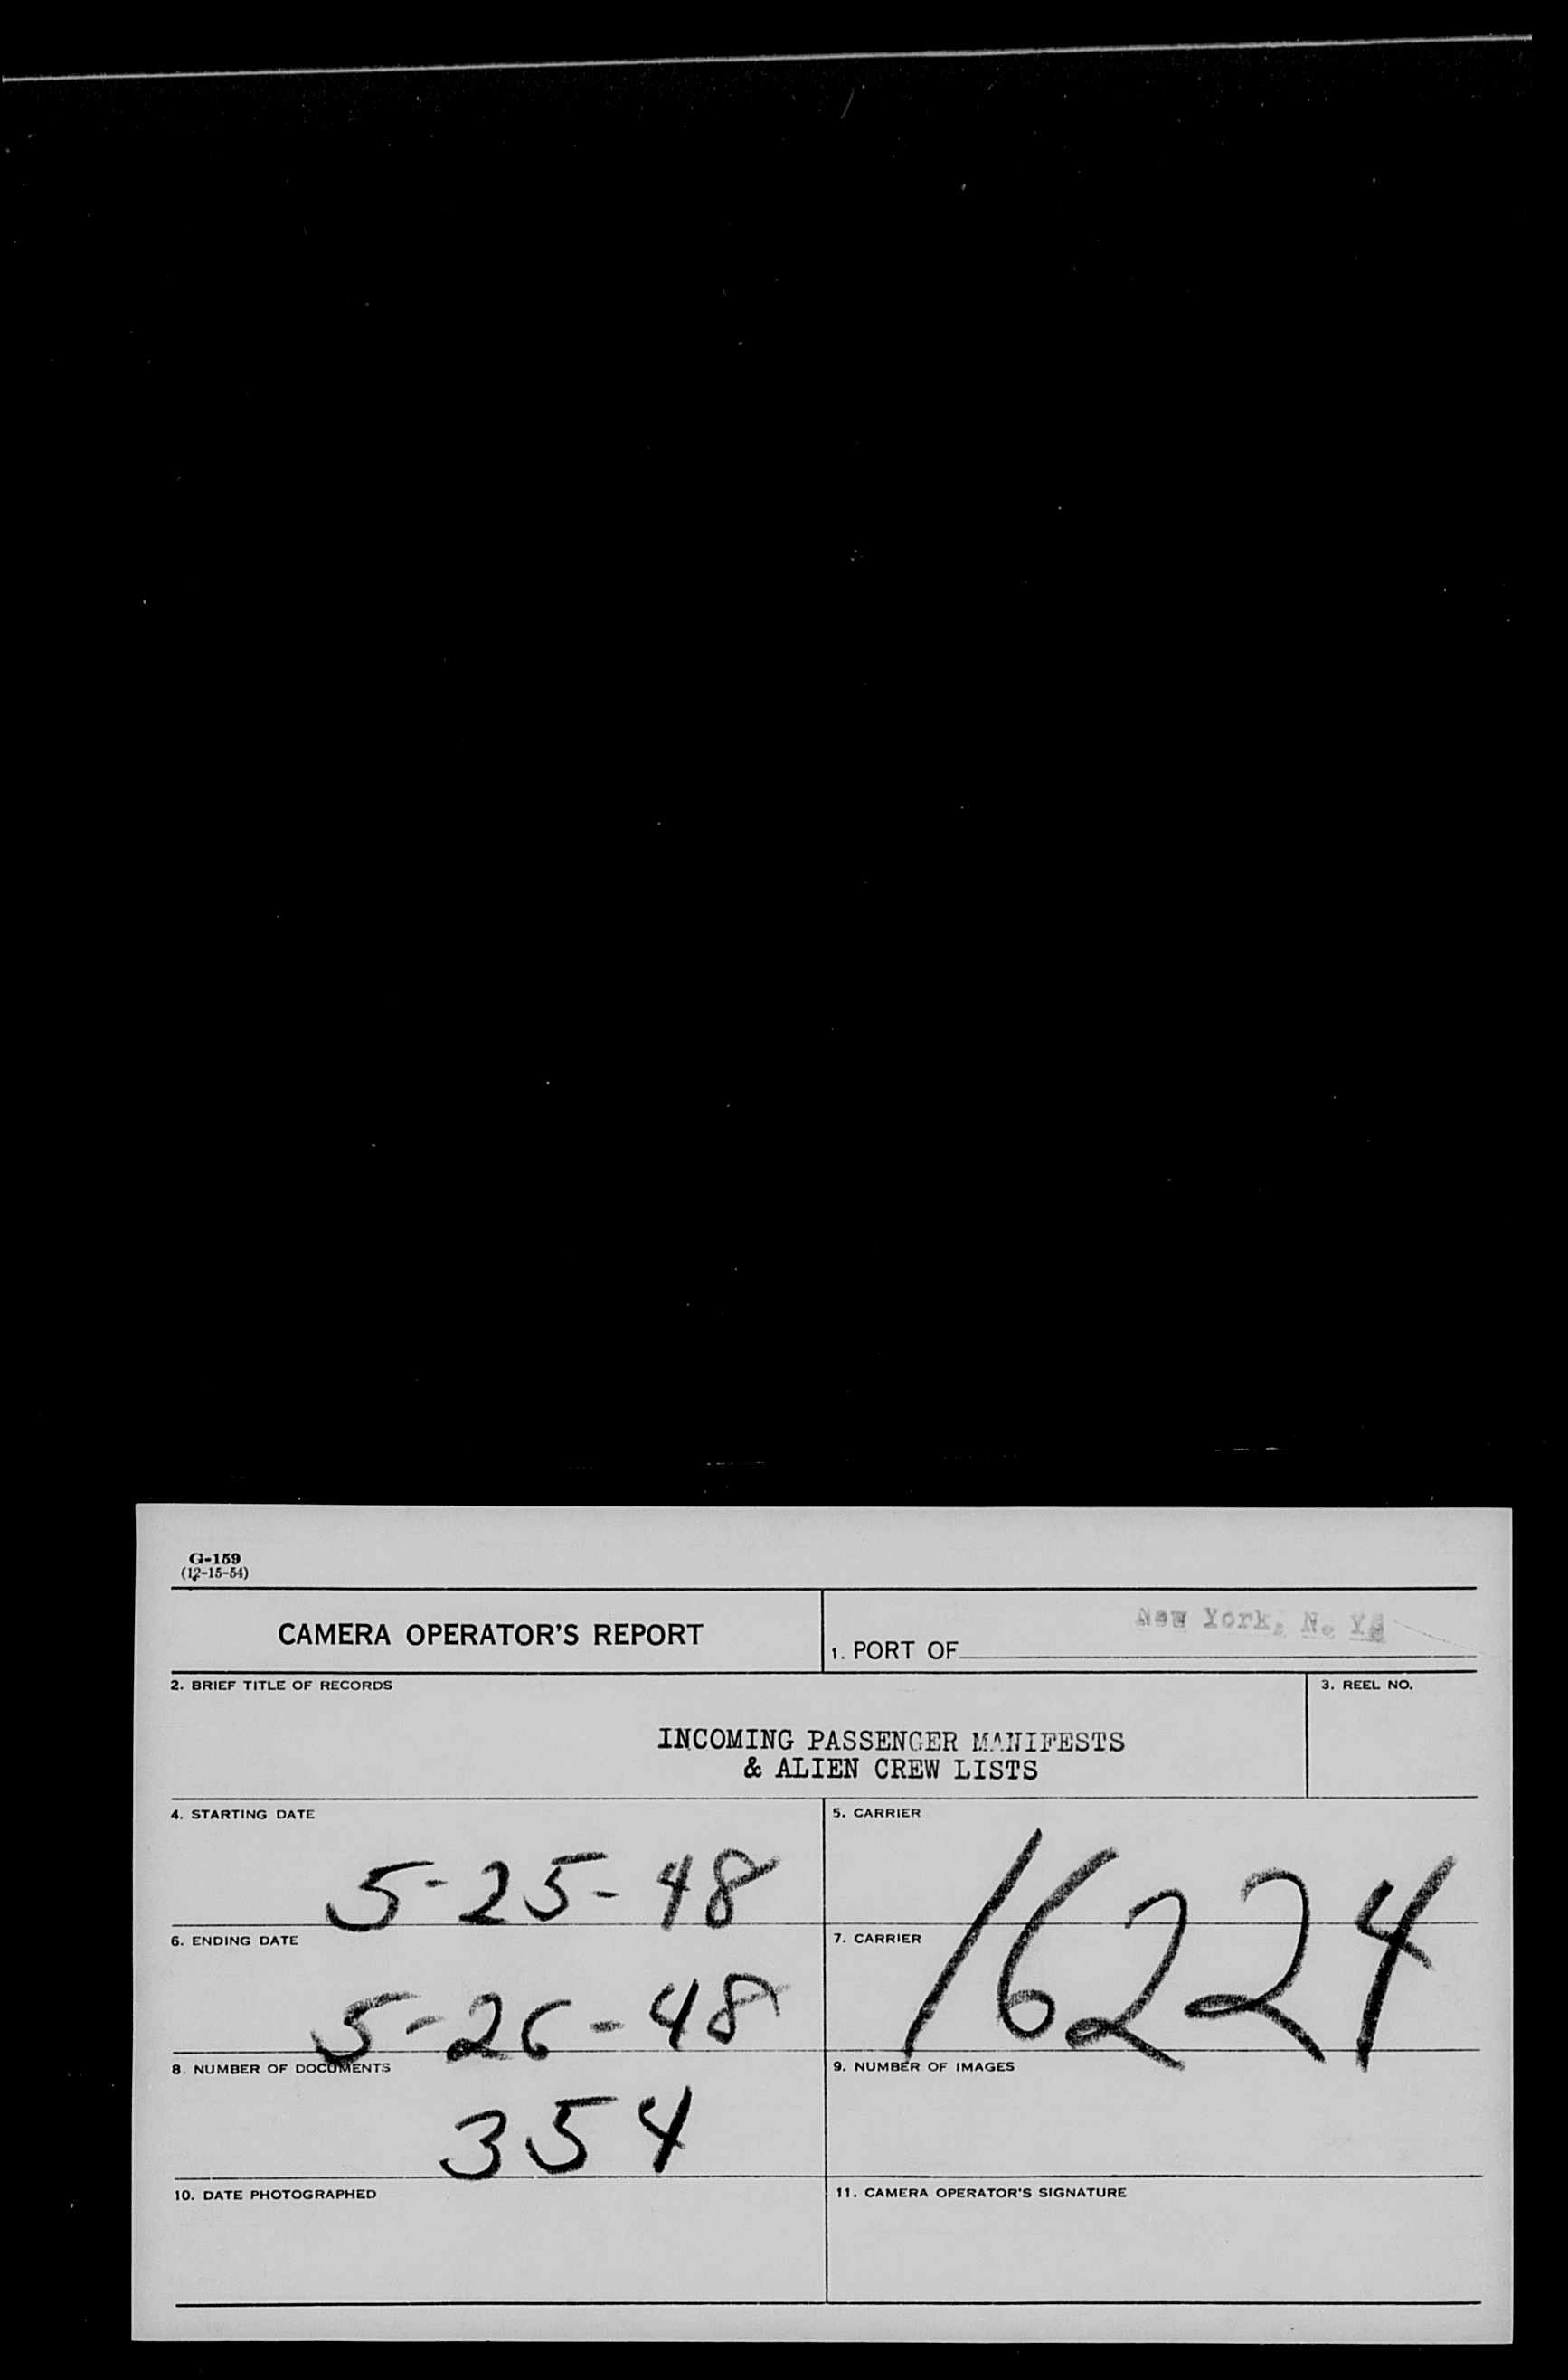 G-159
(12-15-54)
CAMERA OPERATOR'S REPORT
1. PORT OF New York, N. Y.
2. BRIEF TITLE OF RECORDS
3. REEL NO.
INCOMING PASSENGER MANIFESTS
& ALIEN CREW LISTS
4. STARTING DATE
5-25-48
5. CARRIER
16224
6. ENDING DATE
5-26-48
7. CARRIER
8. NUMBER OF DOCUMENTS
354
9. NUMBER OF IMAGES
10. DATE PHOTOGRAPHED
11. CAMERA OPERATOR'S SIGNATURE